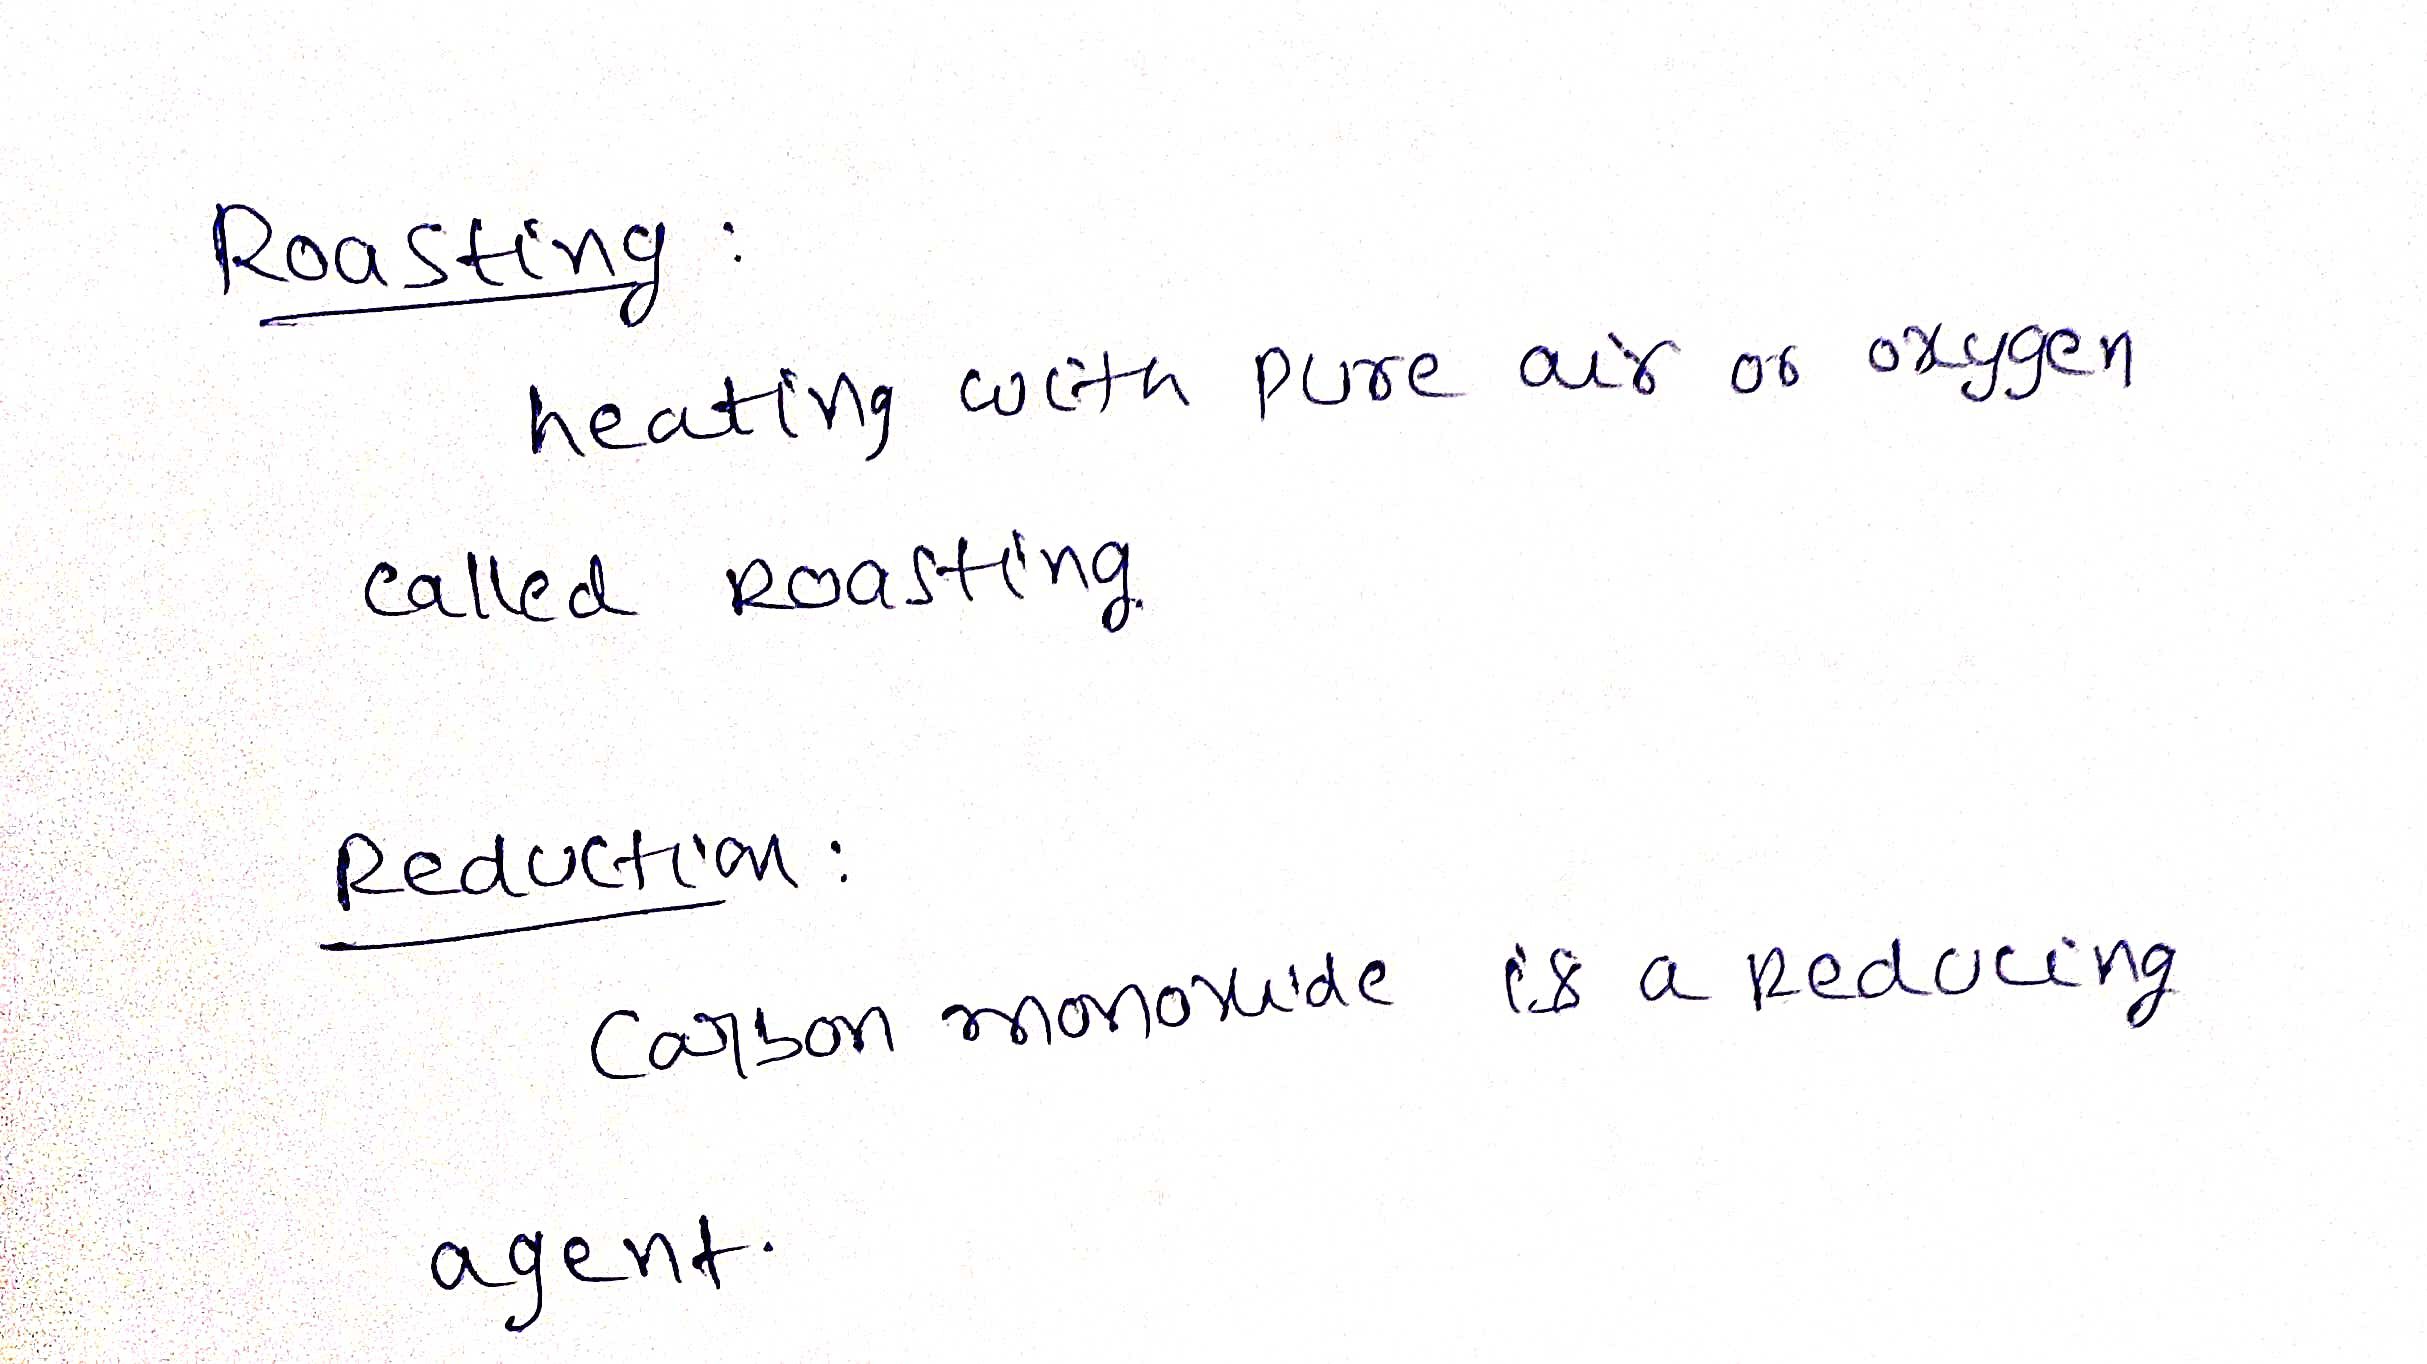 Roasting :
heating with pure air or oxygen
called Roasting.
Reduction :
Carbon monoxide is a Reducing
agent.